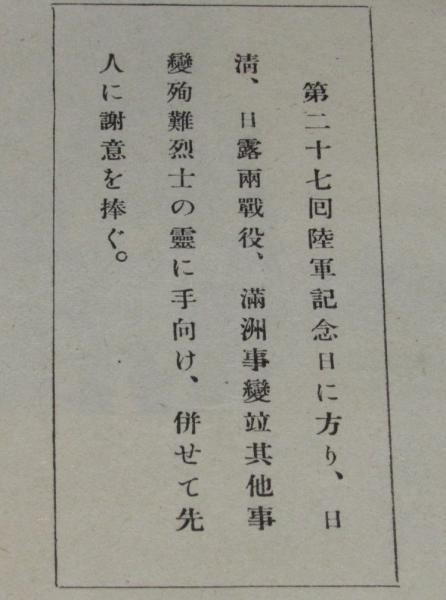 第二十七囘陸軍記念日に方り、日
淸、日露兩戰役、滿洲事變竝其他事
變殉難烈士の靈に手向け、併せて先
人に謝意を捧ぐ。